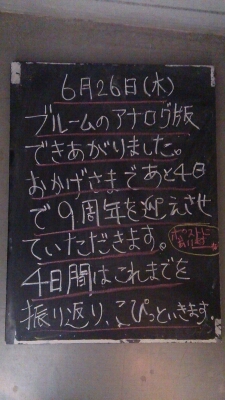 6月26日(水)
ブルームのアナログ版
できあがりました。
おかげさまであと4日
で9周年を迎えさせ
ていただきます。
4日間はこれまでを
振り返り、こぴっといきます。